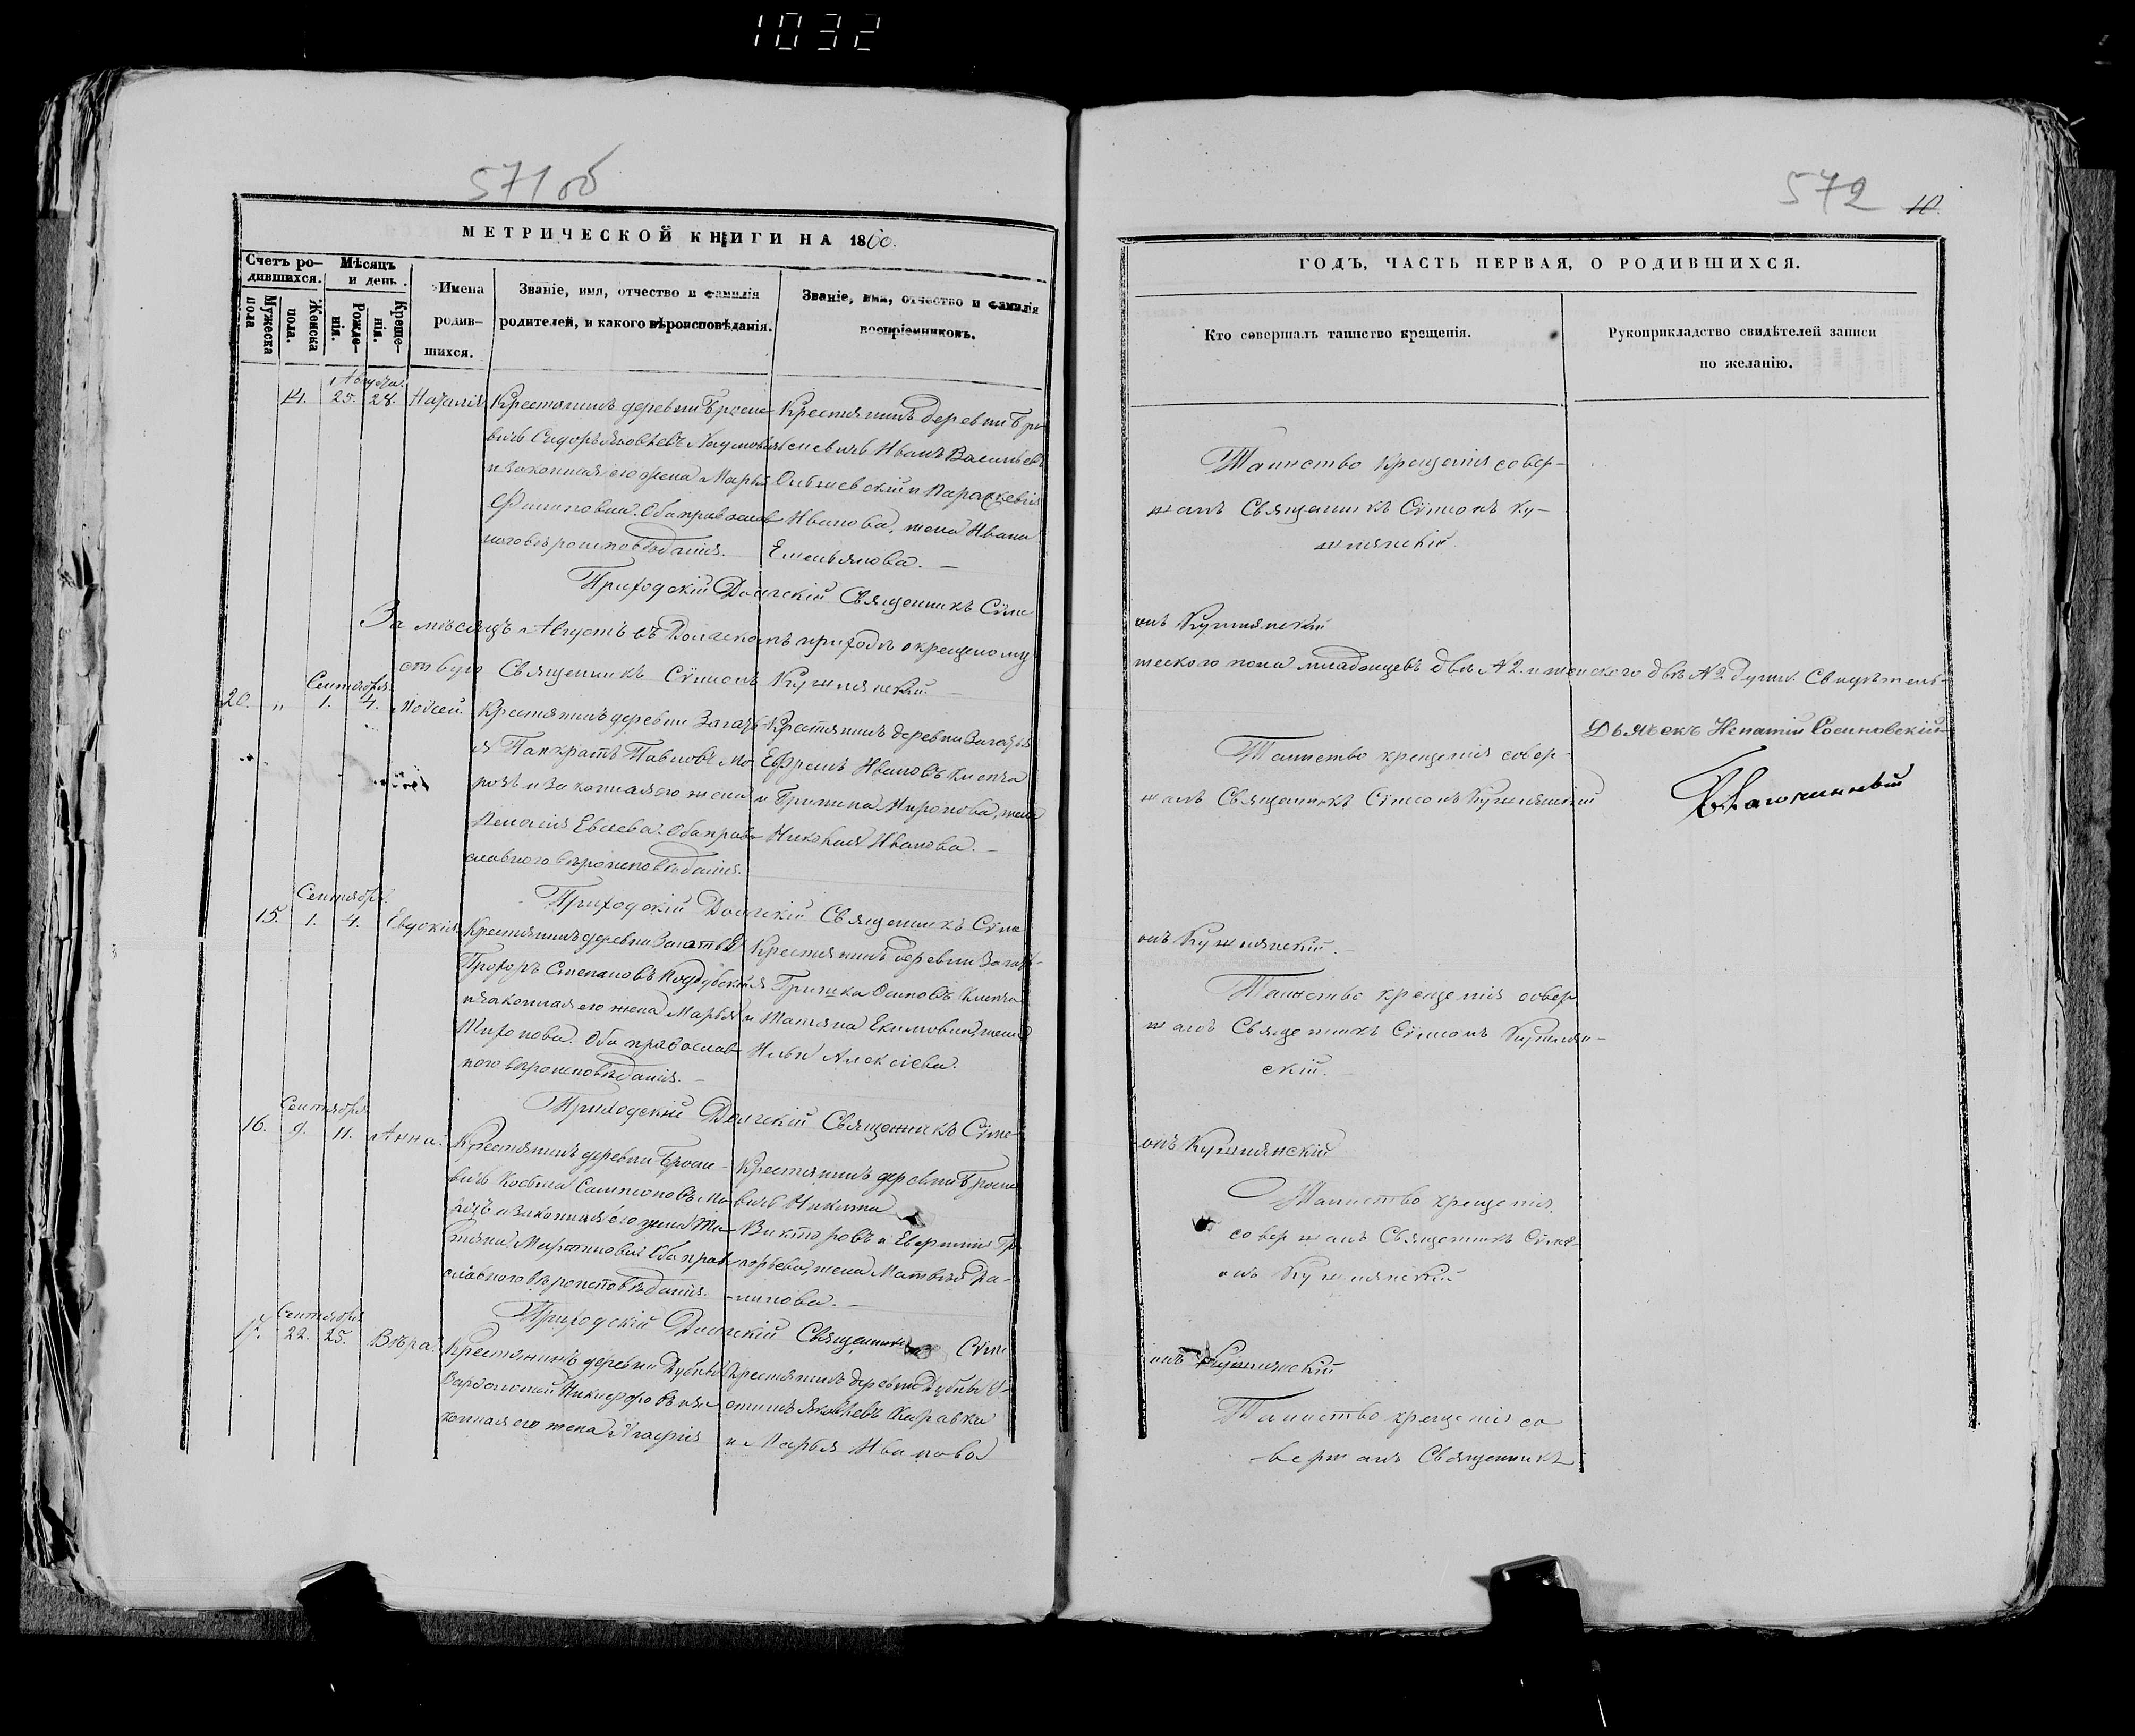 1032
571 об
МЕТРИЧЕСКОЙ КНИГИ НА 1860.
Счетъ ро-
дившихся.
Мѣсяцъ
и день.
Мужеска
пола
Женска
пола.
Рожде-
нія.
Креще-
нія.
Имена
родив-
шихся.
Званіе, имя, отчество и фамилія
родителей, и какого вѣроисповѣданія.
Званіе, имя, отчество и фамилія
воспріемниковъ.
Августа.
14. 25. 28. Наталія
Крестьянинъ деревни Броне-
вичь Сидоръ Яковлевъ Наумовичь
и законная его жена Марья
Филиповна. Оба православ-
наго вѣроисповѣданія.
Крестьянинъ деревни Бро-
невичь Иванъ Васильевъ
и Параскевія
Иванова, жена Ивана
Емельянова.
Приходскій Священникъ Сѵме
За мѣсяцъ Августъ въ приходѣ окрещено му
ствую Священникъ Сѵмеонъ
Сентября
20. „ 1. 4. Моѵсей.
Крестьянинъ деревни Загать-
я Панкратъ Павловъ Мо-
розъ и законная его жена
Пелагія Евсеева. Оба право-
славнаго вѣроисповѣданія.
Крестьянинъ деревни Загатья
Ефремъ Ивановъ Клепча
и Иронова, жена
Николая Иванова.
Приходскій Священникъ Сѵме
Сентября.
15. 1. 4. Евдокія.
Крестьянинъ деревни Загатья
Прохоръ Степановъ Поддубскій
и законная его жена Марья
Миронова. Оба православ-
наго вѣроисповѣданія.
Крестьянинъ деревни Загать-
я Гришка Осиповъ Клепча
и Татьяна Екимовна, жена
Ильи Алексѣева.
Приходскій Священникъ Сѵме
Сентября
16. 9. 11. Анна.
Крестьянинъ деревни Броне-
вичь Косьма Самсоновъ Мо-
розъ и законная его жена Та-
тьяна Мартиновна. Оба право-
славнаго вѣроисповѣданія.
Крестьянинъ деревни Броне-
вичь Никита
Викторовъ и Евгенія Гри-
горьева, жена Матвѣя Да-
нилова.
Приходскій Священникъ Сѵме
Сентября
17. 22. 25. Вѣра.
Крестьянинъ деревни Дубны
Варфоломей Никифоровъ и за-
конная его жена Агафія
Крестьянинъ деревни Дубны
Яковлевъ Журавка
и Марья Иванова
572
10.
ГОДЪ, ЧАСТЬ ПЕРВАЯ, О РОДИВШИХСЯ.
Кто совершалъ таинство крещенія.
Рукоприкладство свидѣтелей записи
по желанію.
Таинство крещенія совер-
шалъ Священникъ Сѵмеонъ
онъ
жескаго пола младенцевъ два № 2 и женскаго двѣ № 2 души. Свидѣтель-
Дьячекъ Ипатій Сосиновскій
Таинство крещенія совер-
шалъ Священникъ Сѵмеонъ
онъ
Таинство крещенія совер
шалъ Священникъ Сѵмеонъ
скій.
онъ
Таинство крещенія
совершалъ Священникъ Сѵме-
онъ
онъ
Таинство крещенія со
вершалъ Священникъ